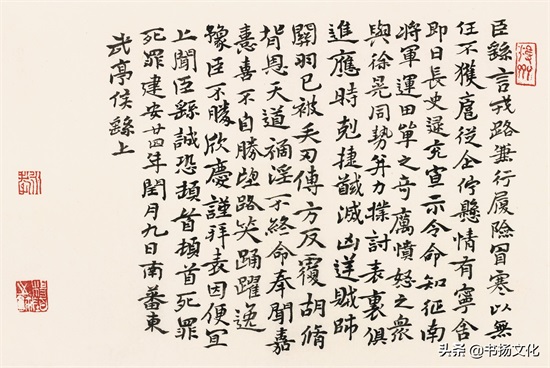 臣繇言戎路兼行履險冒寒以無
任不獲扈從企佇懸情有寧舍
即日長史逯充宣示令命知征南
將軍運田單之奇厲憤怒之衆
與徐晃同勢并力撲討表裏俱
進應時剋捷馘滅凶逆賊帥
關羽已被矢刃傅方反覆胡脩
背恩天道禍淫不終命奉聞嘉
憙喜不自勝望路笑踊躍逸
豫臣不勝欣慶謹拜表因便宜
上聞臣繇誠恐頓首頓首死罪
死罪建安廿四年閏月九日南蕃東
武亭侯繇上
头条 @书扬文化